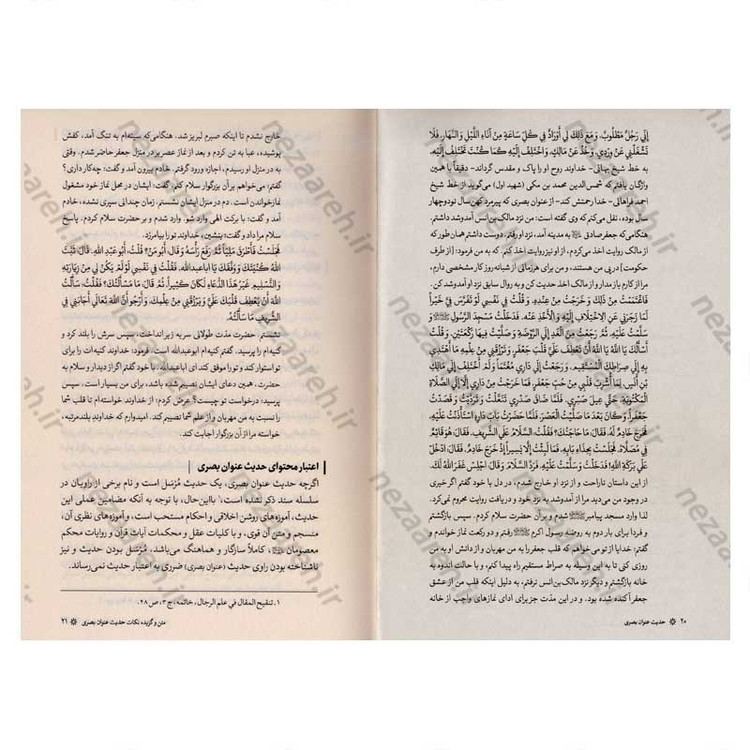 إِلَی رَجُلٌ مَطْلُوبٌ، وَ مَعَ ذَلِكَ لِي أَوْرَادٌ فِي كُلِّ سَاعَةٍ مِنْ آنَاءِ اللَّيْلِ وَ النَّهَارِ، فَلَا
تَشْغَلْنِي عَنْ وِرْدِي، وَ خُذْ عَنْ مَالِكٍ، وَ اخْتَلِفْ إِلَيْهِ كَمَا كُنْتَ تَخْتَلِفُ إِلَيْهِ.
به خط شیخ بهائی- خداوند روح او را پاک و مقدس گرداند- دقیقاً با همین
واژگان یافتم که شمس‌الدین محمد بن مکی (شهید اول) می‌گوید از خط شیخ
احمد فراهانی- خدا رحمتش کند- از عنوان بصری که پیرمرد کهن‌سال نودوچهار
ساله بوده، نقل می‌کنم که وی گفته است: من نزد مالک‌بن‌انس آمدوشد داشتم.
هنگامی‌که جعفرصادق به مدینه آمد، نزد او رفتم. دوست داشتم همان‌طور که
از مالک روایت اخذ می‌کردم، از او نیز روایت اخذ کنم. که به من فرمود: [از طرف
حکومت] در پی من هستند، و من برای هر زمانی از شبانه‌روز کار مشخصی دارم،
مرا از کارم باز مدار و از مالک اخذ حدیث کن و به روال سابق نزد او آمدوشد کن.
فَاغْتَمَمْتُ مِنْ ذَلِكَ وَ خَرَجْتُ مِنْ عِنْدِهِ، وَ قُلْتُ فِي نَفْسِي لَوْ تَفَرَّسَ فِيَّ خَيْراً
لَمَا زَجَرَنِي عَنِ الِاخْتِلَافِ إِلَيْهِ، وَ الْأَخْذِ عَنْهُ. فَدَخَلْتُ مَسْجِدَ الرَّسُولِ وَ
سَلَّمْتُ عَلَيْهِ. ثُمَّ رَجَعْتُ مِنَ الْغَدِ إِلَى الرَّوْضَةِ وَ صَلَّيْتُ فِيهَا رَكْعَتَيْنِ. وَ قُلْتُ
أَسْأَلُكَ يَا اللَّهُ يَا اللَّهُ أَنْ تَعْطِفَ عَلَيَّ قَلْبَ جَعْفَرٍ، وَ تَرْزُقَنِي مِنْ عِلْمِهِ مَا أَهْتَدِي
بِهِ إِلَى صِرَاطِكَ الْمُسْتَقِيمِ. وَ رَجَعْتُ إِلَى دَارِي مُغْتَمّاً وَ لَمْ أَخْتَلِفْ إِلَى مَالِكِ
بْنِ أَنَسٍ، لِمَا أُشْرِبَ قَلْبِي مِنْ حُبِّ جَعْفَرٍ. فَمَا خَرَجْتُ مِنْ دَارِي إِلَّا إِلَى الصَّلَاةِ
الْمَكْتُوبَةِ، حَتَّى عِيلَ صَبْرِي. فَلَمَّا ضَاقَ صَدْرِي تَنَعَّلْتُ وَ تَرَدَّيْتُ وَ قَصَدْتُ
جَعْفَراً، وَ كَانَ بَعْدَ مَا صَلَّيْتُ الْعَصْرَ. فَلَمَّا حَضَرْتُ بَابَ دَارِهِ اسْتَأْذَنْتُ عَلَيْهِ،
فَخَرَجَ خَادِمٌ لَهُ، فَقَالَ: مَا حَاجَتُكَ؟ فَقُلْتُ: السَّلَامُ عَلَى الشَّرِيفِ. فَقَالَ: هُوَ قَائِمٌ
فِي مُصَلَّاهُ. فَجَلَسْتُ بِحِذَاءِ بَابِهِ، فَمَا لَبِثْتُ إِلَّا يَسِيراً إِذْ خَرَجَ خَادِمٌ، فَقَالَ: ادْخُلْ
عَلَى بَرَكَةِ اللَّهِ! فَدَخَلْتُ وَ سَلَّمْتُ عَلَيْهِ، فَرَدَّ السَّلَامَ وَ قَالَ: اجْلِسْ غَفَرَ اللَّهُ لَكَ.
از این داستان ناراحت و از نزد او خارج شدم، در دل با خود گفتم اگر خیری
در وجود من می‌دید مرا از آمدوشد به نزد خود و دریافت روایت محروم نمی‌کرد.
لذا وارد مسجد پیامبر شدم و بر آن حضرت سلام کردم. سپس بازگشتم
و فردا بار دوم به روضه رسول اکرم رفتم و دو رکعت نماز خواندم و
گفتم: خدایا از تو می‌خواهم که قلب جعفر را به من مهربان و از دانش او به من
روزی کنی تا به این وسیله به صراط مستقیم راه پیدا کنم، و با حالت اندوه به
خانه بازگشتم و دیگر نزد مالک‌بن‌انس نرفتم، به دلیل اینکه قلب من از عشق
جعفر آکنده شده بود. و در این مدت جز برای ادای نمازهای واجب از خانه
۲۰ حدیث عنوان بصری
خارج نشدم تا اینکه صبرم لبریز شد. هنگامی‌که سینه‌ام به تنگ آمد، کفش
پوشیده، عبا به تن کردم و بعد از نماز عصر بر در منزل جعفر حاضر شدم. وقتی
به در منزل او رسیدم، اجازه ورود گرفتم. خادم بیرون آمد و گفت: چه‌کار داری؟
گفتم: می‌خواهم بر آن بزرگوار سلام کنم. گفت: ایشان در محل نماز خود مشغول
نماز است. دم در منزل ایشان نشستم. زمان چندانی سپری نشده، خادم
آمد و گفت: با برکت الهی وارد شو. وارد شدم و بر حضرت سلام کردم. پاسخ
سلام مرا داد و گفت: بنشین، خداوند تو را بیامرزد.
فَجَلَسْتُ فَأَطْرَقَ مَلِيّاً ثُمَّ رَفَعَ رَأْسَهُ وَ قَالَ: أَبُو مَنْ؟ قُلْتُ: أَبُو عَبْدِ اللَّهِ. قَالَ: ثَبَّتَ
اللَّهُ كُنْيَتَكَ وَ وَفَّقَكَ يَا أَبَا عَبْدِ اللَّهِ. فَقُلْتُ فِي نَفْسِي لَوْ لَمْ يَكُنْ لِي مِنْ زِيَارَتِهِ
وَ التَّسْلِيمِ غَيْرُ هَذَا الدُّعَاءِ لَكَانَ كَثِيراً. ثُمَّ قَالَ: مَا مَسْأَلَتُكَ؟ فَقُلْتُ: سَأَلْتُ
اللَّهَ أَنْ يَعْطِفَ قَلْبَكَ عَلَيَّ وَ يَرْزُقَنِي مِنْ عِلْمِكَ، وَ أَرْجُو أَنَّ اللَّهَ تَعَالَى أَجَابَنِي فِي
الشَّرِيفِ مَا سَأَلْتُهُ.
نشستم. حضرت مدت طولانی سر به زیر انداخت، سپس سرش را بلند کرد و
کنیه‌ام را پرسید. گفتم کنیه‌ام ابوعبدالله است. فرمود: خداوند کنیه‌ات را برای
تو استوار کند و تو را موفق کند ای اباعبدالله. با خود گفتم اگر از دیدار و سلام به
حضرت، همین دعای ایشان نصیبم شده باشد، برای من بسیار است. سپس
پرسید: درخواست تو چیست؟ عرض کردم: از خداوند خواسته‌ام تا قلب شما
را نسبت به من مهربان و از علم شما نصیبم کند. امیدوارم که خداوند بلندمرتبه،
خواسته مرا از آن بزرگوار اجابت کند.
اعتبار محتوای حدیث عنوان بصری
اگرچه حدیث عنوان بصری، یک حدیث مُرْسَل است و نام برخی از راویان در
سلسله سند ذکر نشده است،۱ بااین‌حال، با توجه به آنکه مضامین عملی این
حدیث، آموزه‌های روشن اخلاقی و احکام مستحب است، و آموزه‌های نظری آن،
منسجم و متن آن قوی، و با کلیات عقل و محکمات آیات قرآن و روایات محکم
معصومان، کاملاً سازگار و هماهنگ می‌باشد، مُرْسَل بودن حدیث و نیز
ناشناخته بودن راوی حدیث (عنوان بصری) ضرری به اعتبار حدیث نمی‌رساند.
۱. تنقیح المقال في علم الرجال، خاتمه، ج ۳، ص ۴۸.
متن و گزیده نکات حدیث عنوان بصری ۲۱
nezaareh.ir